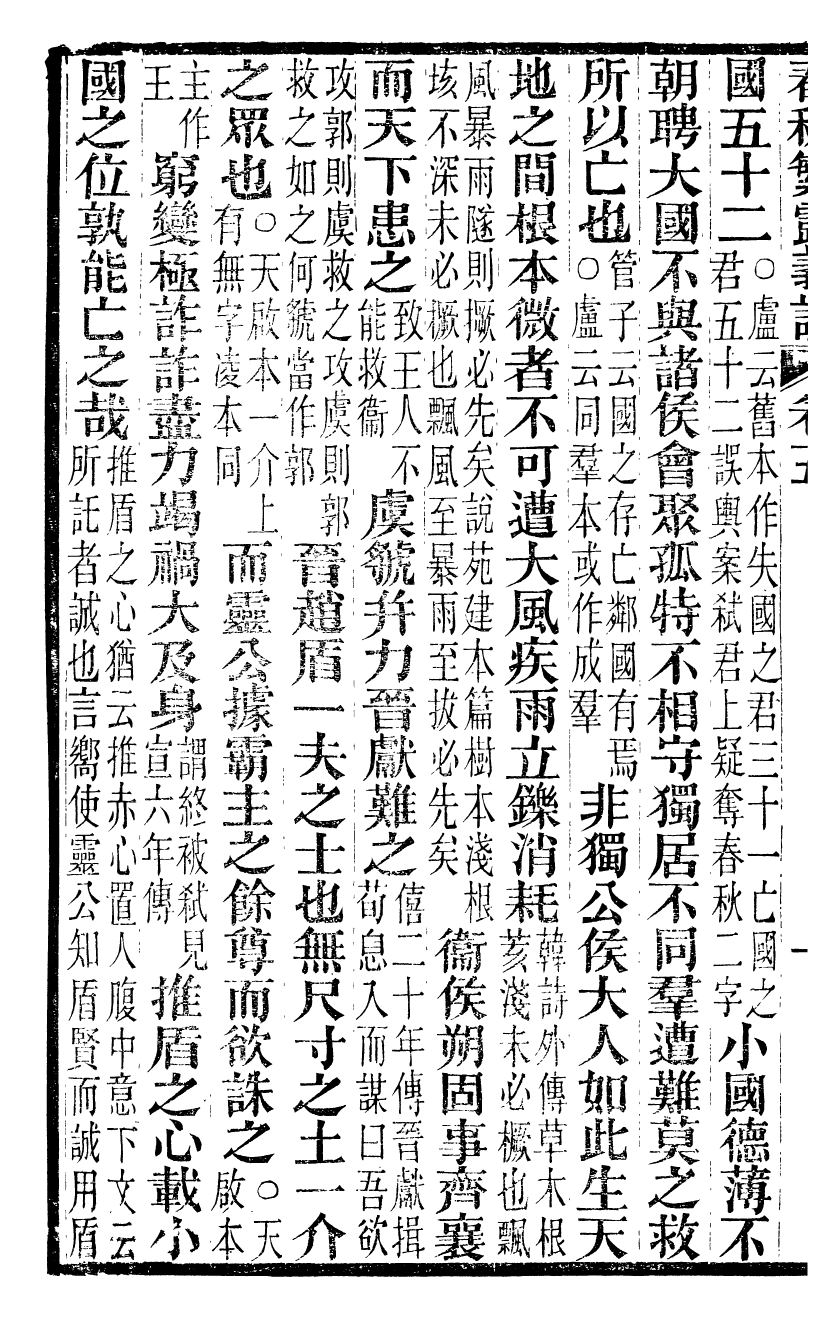 春秋繁露義證 卷五 一
國五十二○盧云舊本作失國之君三十一亡國之君五十二誤輿案弒君上疑奪春秋二字小國德薄不
朝聘大國不與諸侯會聚孤特不相守獨居不同羣遭難莫之救
所以亡也管子云國之存亡鄰國有焉○盧云同羣本或作成羣非獨公侯大人如此生天
地之間根本微者不可遭大風疾雨立鑠消耗韓詩外傳草木根荄淺未必橛也飄
風暴雨隧則撅必先矣說苑建本篇樹本淺根垓不深未必橛也飄風至暴雨至拔必先矣衞侯朔固事齊襄
而天下患之致王人不能救衞虞虢并力晉獻難之僖二十年傳晉獻揖荀息入而謀曰吾欲
攻郭則虞救之攻虞則郭救之如之何虢當作郭晉趙盾一夫之士也無尺寸之土一介
之眾也○天啟本一介上有無字凌本同而靈公據霸主之餘尊而欲誅之○天啟本
主作王窮變極詐詐盡力竭禍大及身謂終被弒見宣六年傳推盾之心載小
國之位孰能亡之哉推盾之心猶云推赤心置人腹中意下文云所託者誠也言嚮使靈公知盾賢而誠用盾